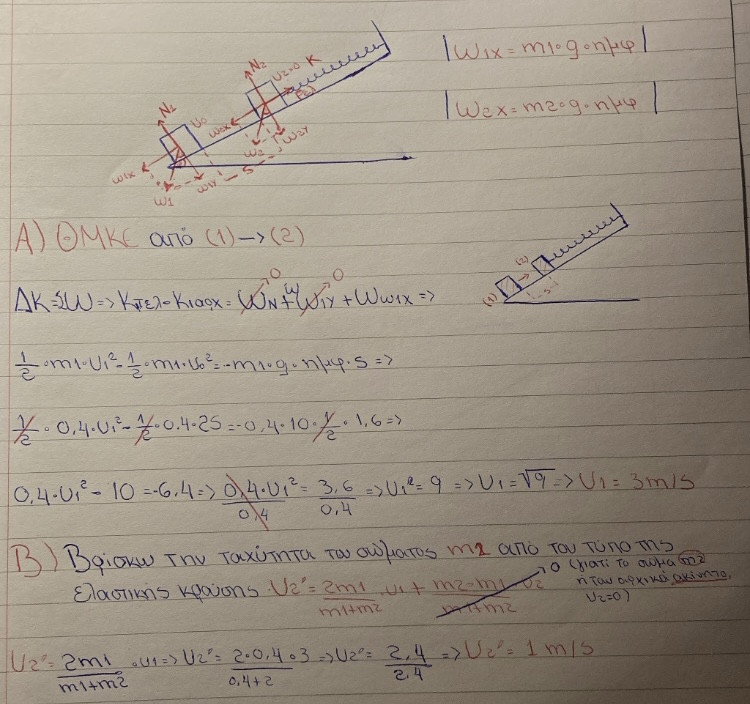 N2
U2=0 K
N1
U0
(2)
W2x
W2
W2y
S
W1x
W1y
W1
|W1x = m1·g·ημφ|
|W2x = m2·g·ημφ|
A) ΘΜΚΕ από (1) → (2)
(2)
(1)
ΔK = ΣW => Kτελ - Kαρχ = WN + W1y + Ww1x =>
0 0
1/2 · m1·U1² - 1/2 · m1·U0² = -m1·g·ημφ·S =>
1/2 · 0,4·U1² - 1/2 · 0,4·25 = -0,4·10·1/2 · 1,6 =>
0,4·U1² - 10 = -6,4 => 0,4·U1²/0,4 = 3,6/0,4 => U1² = 9 => U1 = √9 => U1 = 3m/s
B) Βρίσκω την ταχύτητα του σώματος m2 από τον τύπο της
ελαστικής κρούσης U2' = 2m1/m1+m2 · U1 + m2-m1/m1+m2 · U2
0 (γιατί το σώμα m2
ήταν αρχικά ακίνητο,
U2=0)
U2' = 2m1/m1+m2 · U1 => U2' = 2·0,4·3/0,4+2 => U2' = 2,4/2,4 => U2' = 1 m/s